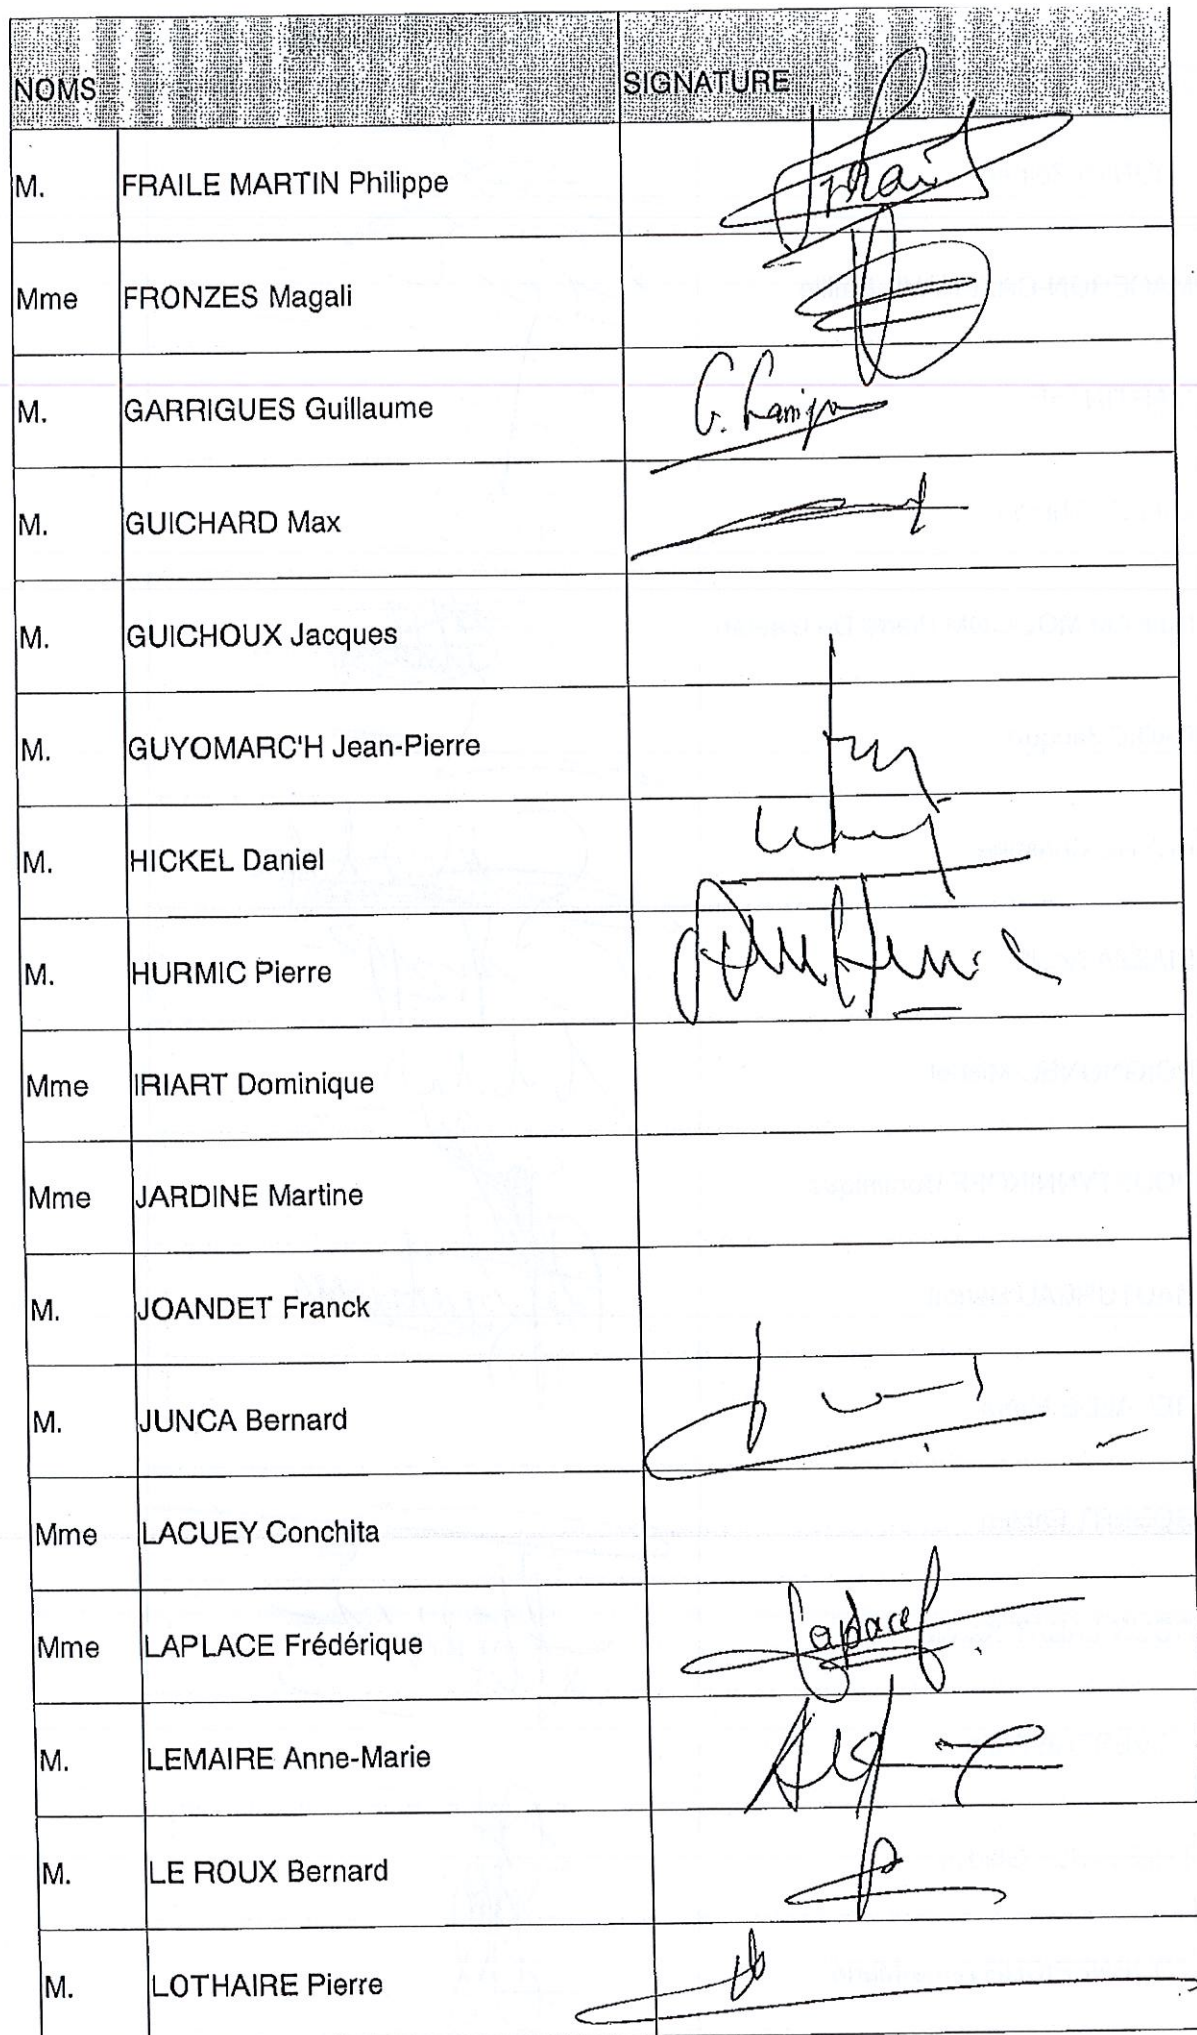 NOMS SIGNATURE
M. FRAILE MARTIN Philippe
Mme FRONZES Magali
M. GARRIGUES Guillaume G.
M. GUICHARD Max
M. GUICHOUX Jacques
M. GUYOMARC'H Jean-Pierre
M. HICKEL Daniel
M. HURMIC Pierre
Mme IRIART Dominique
Mme JARDINE Martine
M. JOANDET Franck
M. JUNCA Bernard
Mme LACUEY Conchita
Mme LAPLACE Frédérique Laplace
M. LEMAIRE Anne-Marie
M. LE ROUX Bernard
M. LOTHAIRE Pierre